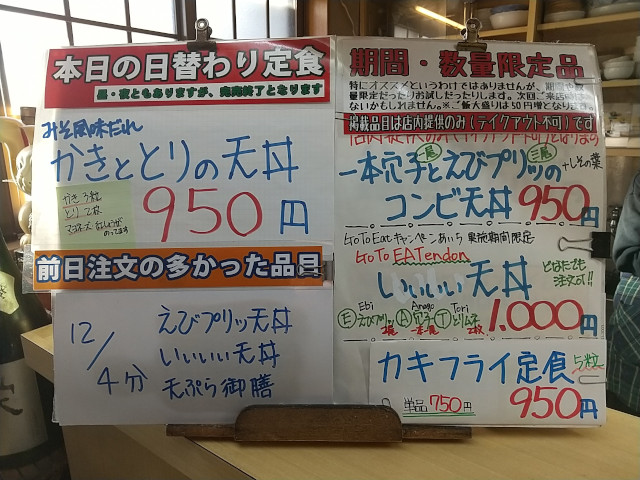 本日の日替わり定食
昼・夜ともありますが、完売終了となります
みそ風味だれ
かきととりの天丼
かき3粒
とり2枚
マヨネーズ
のってます
950円
前日注文の多かった品目
12/4分
えびプリッツ天丼
いいいい天丼
天ぷら御膳
期間・数量限定品
特にオススメというわけではありませんが、期間
限定だったりお試しだったりします。次回ご来店
ないかもしれません。※ご飯大盛りは50円増となります
掲載品目は店内提供のみ(テイクアウト不可)です
一本穴子とえびプリッツの
+しその葉
コンビ天丼 950円
Go To Eatキャンペーンあいち 実施期間限定
Go To EATendon
いいいい天丼
どなたでも
注文OK!!
Ebi Anago Tori
Eえびプリッツ A穴子 Tとりムネ
2尾 一本 2枚
1,000円
カキフライ定食 5粒
単品 750円
950円